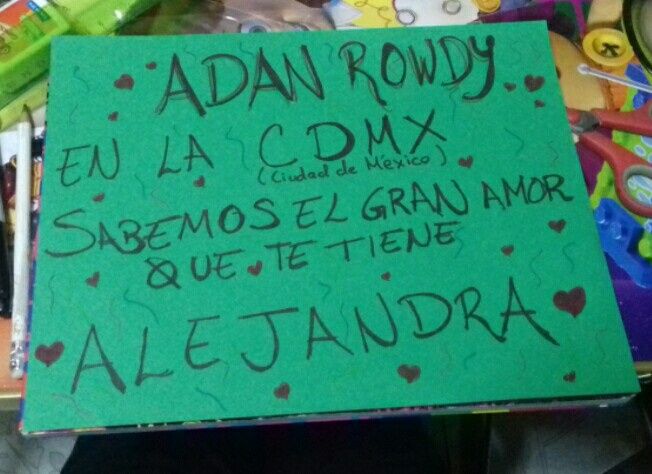 ADAN ROWDY
EN LA CDMX
(Ciudad de México)
SABEMOS EL GRAN AMOR
QUE TE TIENE
ALEJANDRA